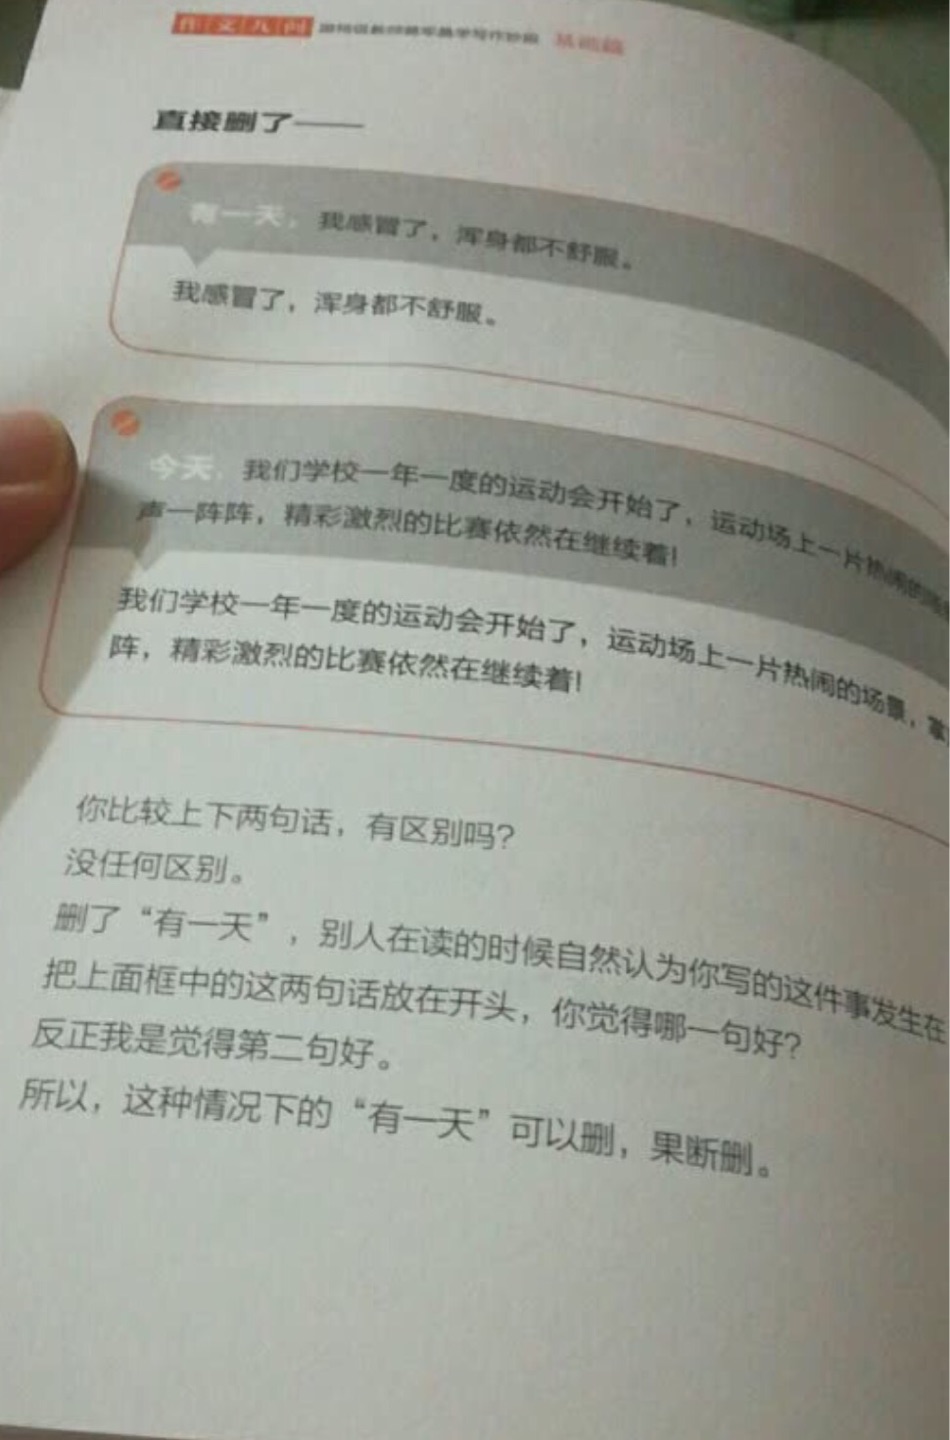 作文八问 基础篇
直接删了——
有一天，我感冒了，浑身都不舒服。
我感冒了，浑身都不舒服。
今天，我们学校一年一度的运动会开始了，运动场上一片热闹的
声一阵阵，精彩激烈的比赛依然在继续着！
我们学校一年一度的运动会开始了，运动场上一片热闹的场景，掌
阵，精彩激烈的比赛依然在继续着！
你比较上下两句话，有区别吗？
没任何区别。
删了“有一天”，别人在读的时候自然认为你写的这件事发生在
把上面框中的这两句话放在开头，你觉得哪一句好？
反正我是觉得第二句好。
所以，这种情况下的“有一天”可以删，果断删。